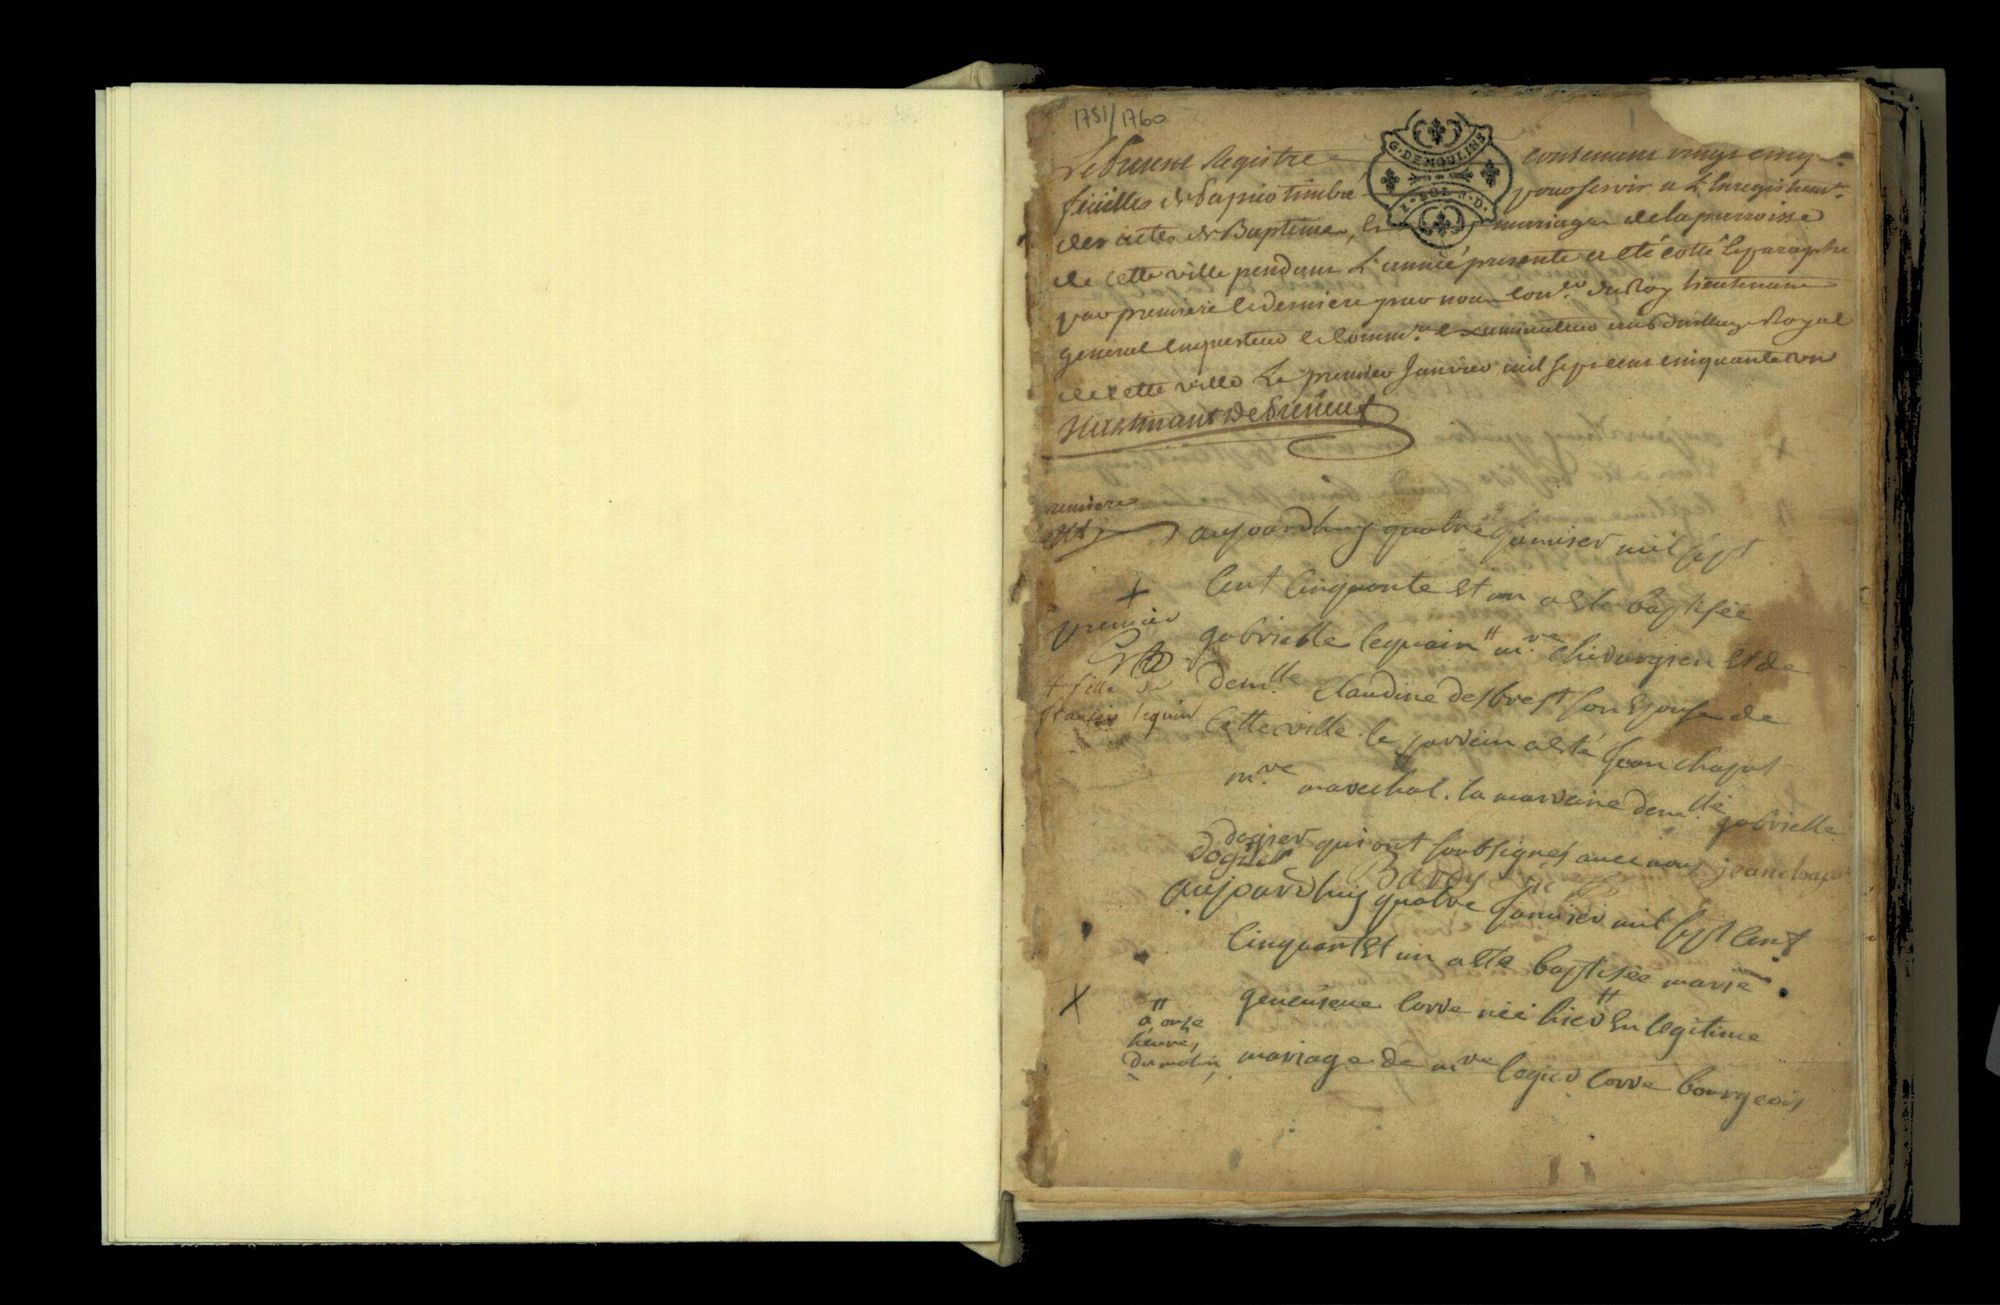 1751/1760
G. DE MOULINS
1. SOL. 8. D.
Le Present Registre contenant vingt cinq
feüilles de Papier timbré pour servir a L'Enregistrem.t
des actes de Baptemes, et mariages de la parroisse
de cette ville pendant L'année presente a eté cotté et paraphé
par premiere et derniere par nous Con.er du Roy Lieutenant
general Enquesteur et Comm.re Examinateur au Bailliage Royal
de cette ville Le premier Janvier mil sept cent cinquante un
premiere
aujourdhuy quatre Janvier mil sept
Cent Cinquante et un a este baptisée
premier
gabrielle lequain # m.re Chirurgien et de
# fille de
francois lequin
dem.lle Claudine desbrest son Epouse de
Cette ville. le parrain a esté Jean Chapot
m.re marechal. la marraine dem.lle gabrielle
dogier qui ont soubsignés avec nous jean chapot
dogier
Bardy
aujourdhuy quatre Janvier mil sept Cent
Cinquant et un a este baptisée marie
genevieve Corre née hier # En legitime
# a onze
heures
du matin
mariage de m.re legier Corre bourgeois